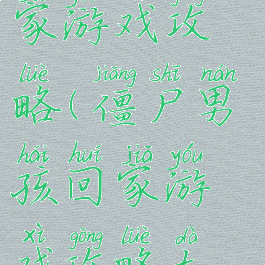 家游戏攻
lüè jiāng shī nán
略(僵尸男
hái huí jiā yóu
孩回家游
xì gōng lüè dà
戏攻略大